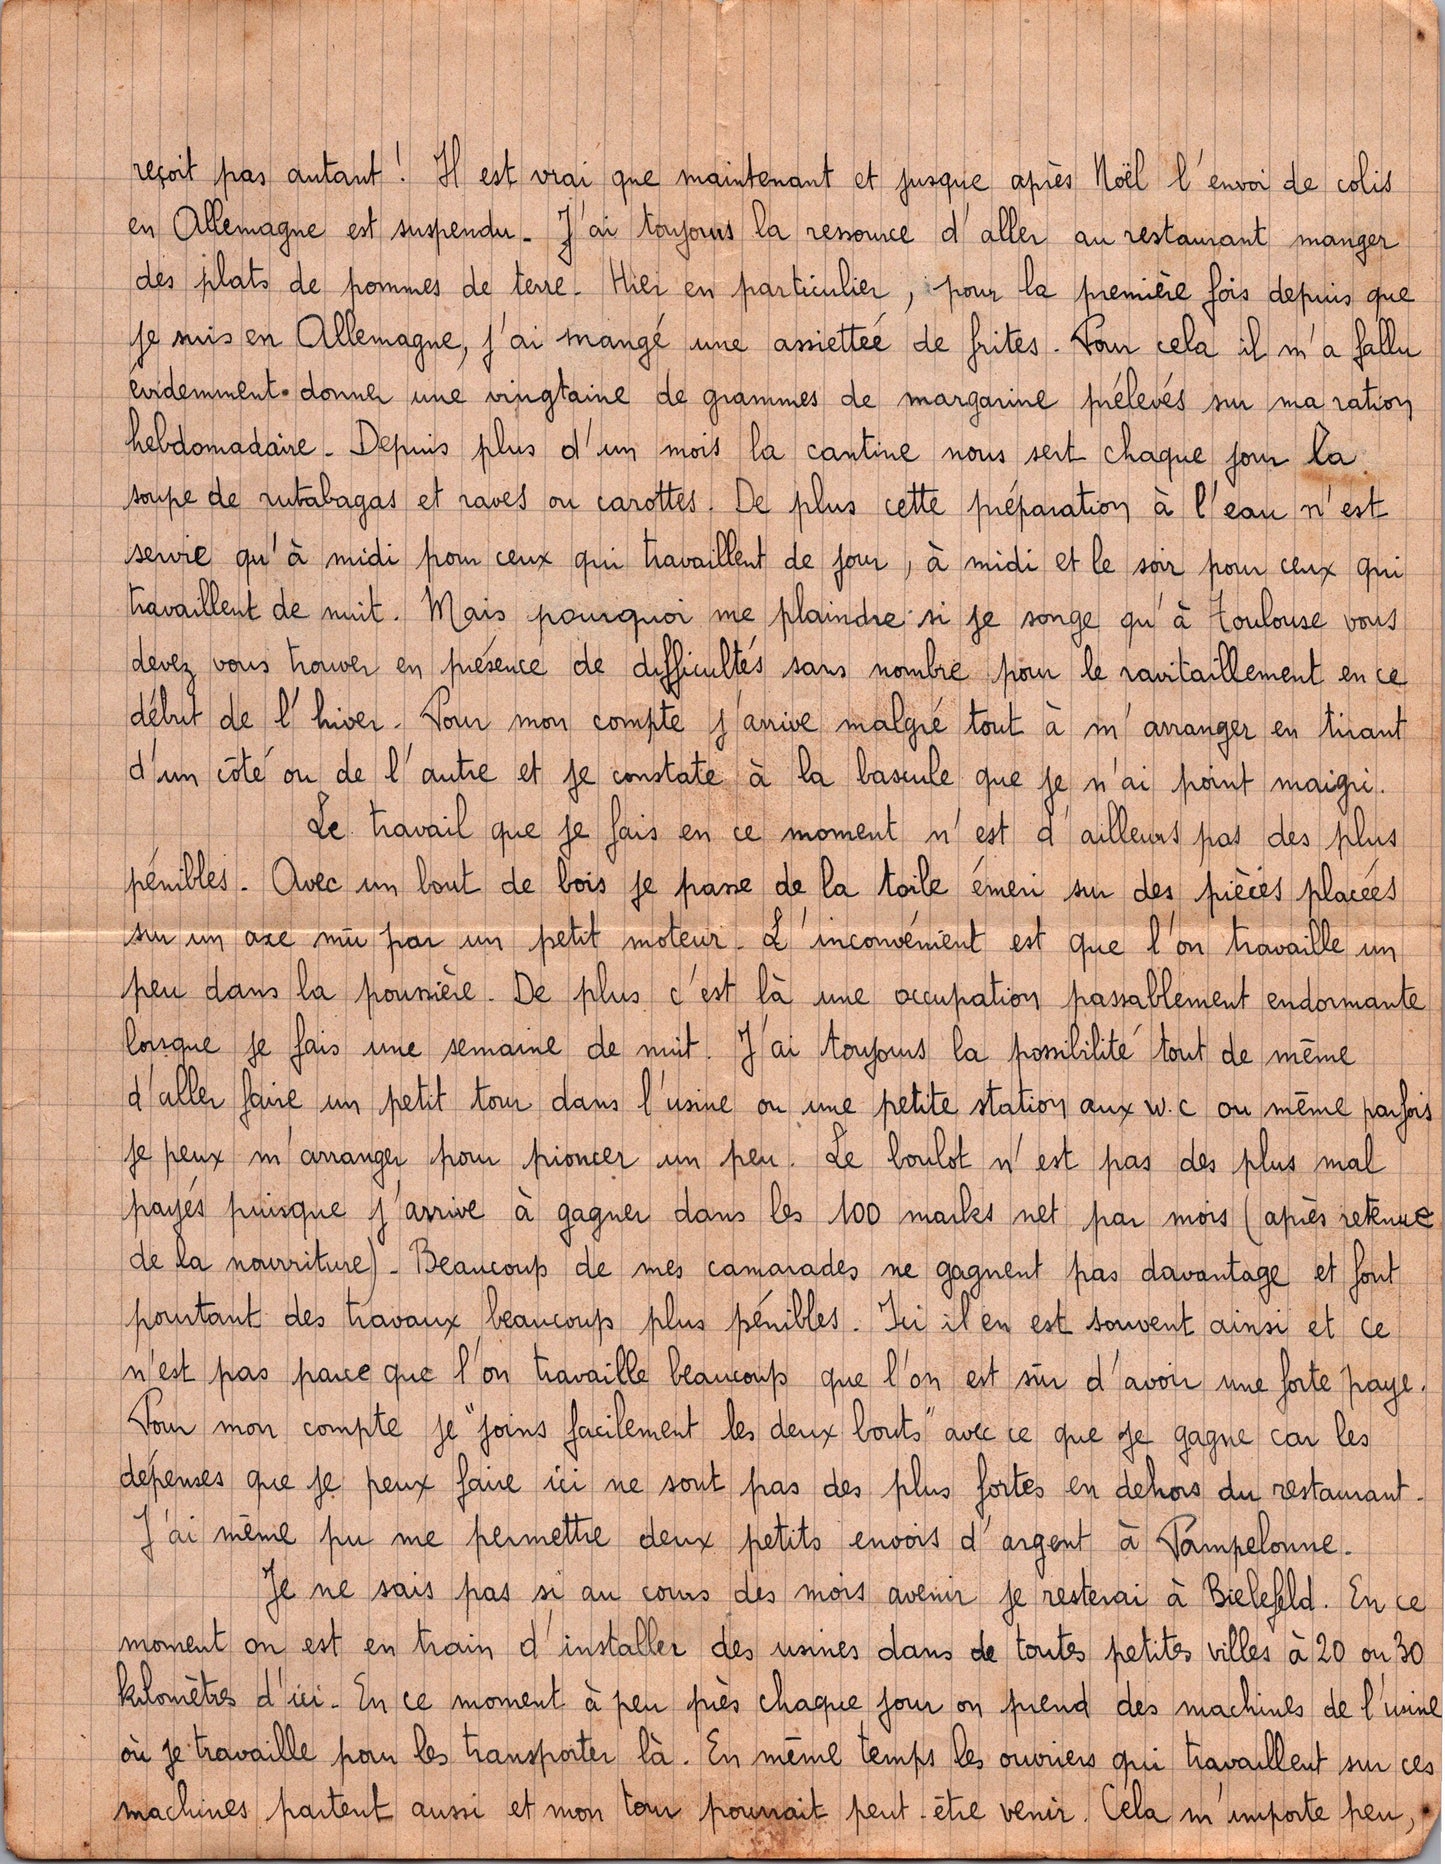 reçoit pas autant ! Il est vrai que maintenant et jusque après Noël l'envoi de colis
en Allemagne est suspendu. J'ai toujours la ressource d'aller au restaurant manger
des plats de pommes de terre. Hier en particulier, pour la première fois depuis que
je suis en Allemagne, j'ai mangé une assiettée de frites. Pour cela il m'a fallu
évidemment donner une vingtaine de grammes de margarine prélevés sur ma ration
hebdomadaire. Depuis plus d'un mois la cantine nous sert chaque jour la
soupe de rutabagas et raves ou carottes. De plus cette préparation à l'eau n'est
servie qu'à midi pour ceux qui travaillent de jour, à midi et le soir pour ceux qui
travaillent de nuit. Mais pourquoi me plaindre si je songe qu'à Toulouse vous
devez vous trouver en présence de difficultés sans nombre pour le ravitaillement en ce
début de l'hiver. Pour mon compte j'arrive malgré tout à m'arranger en tirant
d'un côté ou de l'autre et je constate à la bascule que je n'ai point maigri.
Le travail que je fais en ce moment n'est d'ailleurs pas des plus
pénibles. Avec un bout de bois je passe de la toile émeri sur des pièces placées
sur un axe mû par un petit moteur. L'inconvénient est que l'on travaille un
peu dans la poussière. De plus c'est là une occupation passablement endormante
lorsque je fais une semaine de nuit. J'ai toujours la possibilité tout de même
d'aller faire un petit tour dans l'usine ou une petite station aux w.c ou même parfois
je peux m'arranger pour pioncer un peu. Le boulot n'est pas des plus mal
payés puisque j'arrive à gagner dans les 100 marks net par mois (après retenue
de la nourriture). Beaucoup de mes camarades ne gagnent pas davantage et font
pourtant des travaux beaucoup plus pénibles. Ici il en est souvent ainsi et ce
n'est pas parce que l'on travaille beaucoup que l'on est sûr d'avoir une forte paye.
Pour mon compte je "joins facilement les deux bouts" avec ce que je gagne car les
dépenses que je peux faire ici ne sont pas des plus fortes en dehors du restaurant.
J'ai même pu me permettre deux petits envois d'argent à Pampelonne.
Je ne sais pas si au cours des mois avenir je resterai à Bielefeld. En ce
moment on est en train d'installer des usines dans de toutes petites villes à 20 ou 30
kilomètres d'ici. En ce moment à peu près chaque jour on prend des machines de l'usine
où je travaille pour les transporter là. En même temps les ouvriers qui travaillent sur ces
machines partent aussi et mon tour pourrait peut-être venir. Cela m'importe peu,